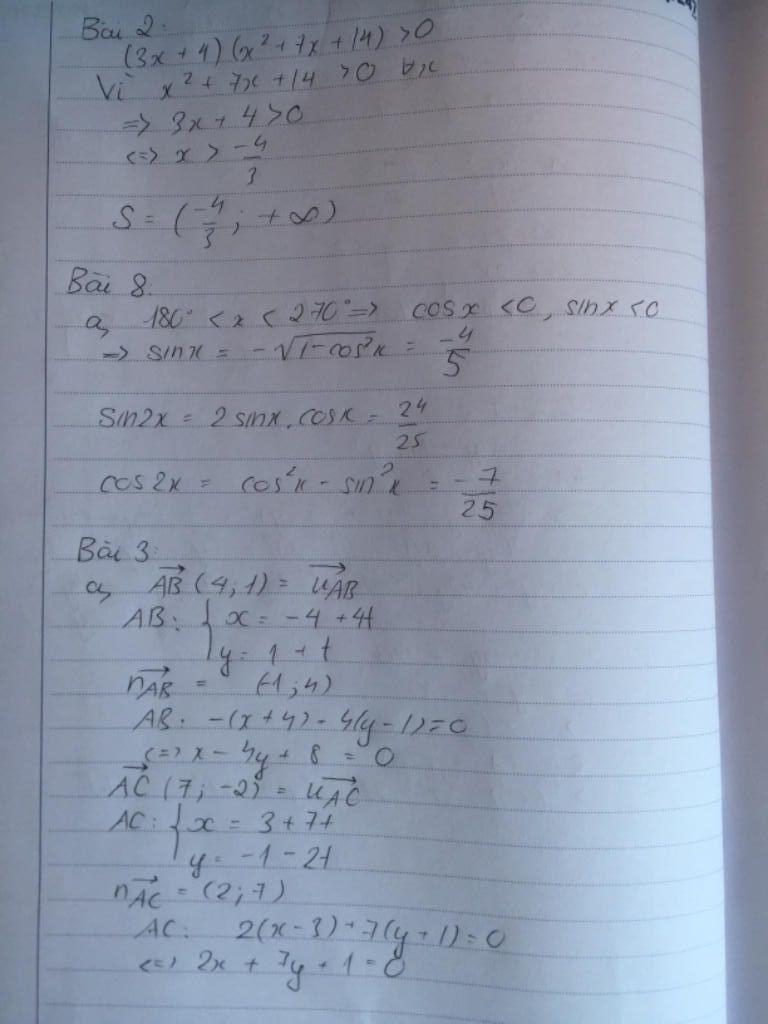 Bài 2:
(3x + 4) (x² + 7x + 14) > 0
Vì x² + 7x + 14 > 0 ∀x
=> 3x + 4 > 0
<=> x > -4/3
S = (-4/3; +∞)
Bài 8.
a, 180° < x < 270° => cosx < 0, sinx < 0
=> sinx = -√(1-cos²x) = -4/5
sin2x = 2 sinx.cosx = 24/25
cos2x = cos²x - sin²x = -7/25
Bài 3:
a, →AB (4; 1) = →uAB
AB: { x = -4 + 4t
y = 1 + t
→nAB = (-1; 4)
AB: -(x + 4) + 4(y - 1) = 0
<=> x - 4y + 8 = 0
→AC (7; -2) = →uAC
AC: { x = 3 + 7t
y = -1 - 2t
→nAC = (2; 7)
AC: 2(x - 3) + 7(y + 1) = 0
<=> 2x + 7y + 1 = 0